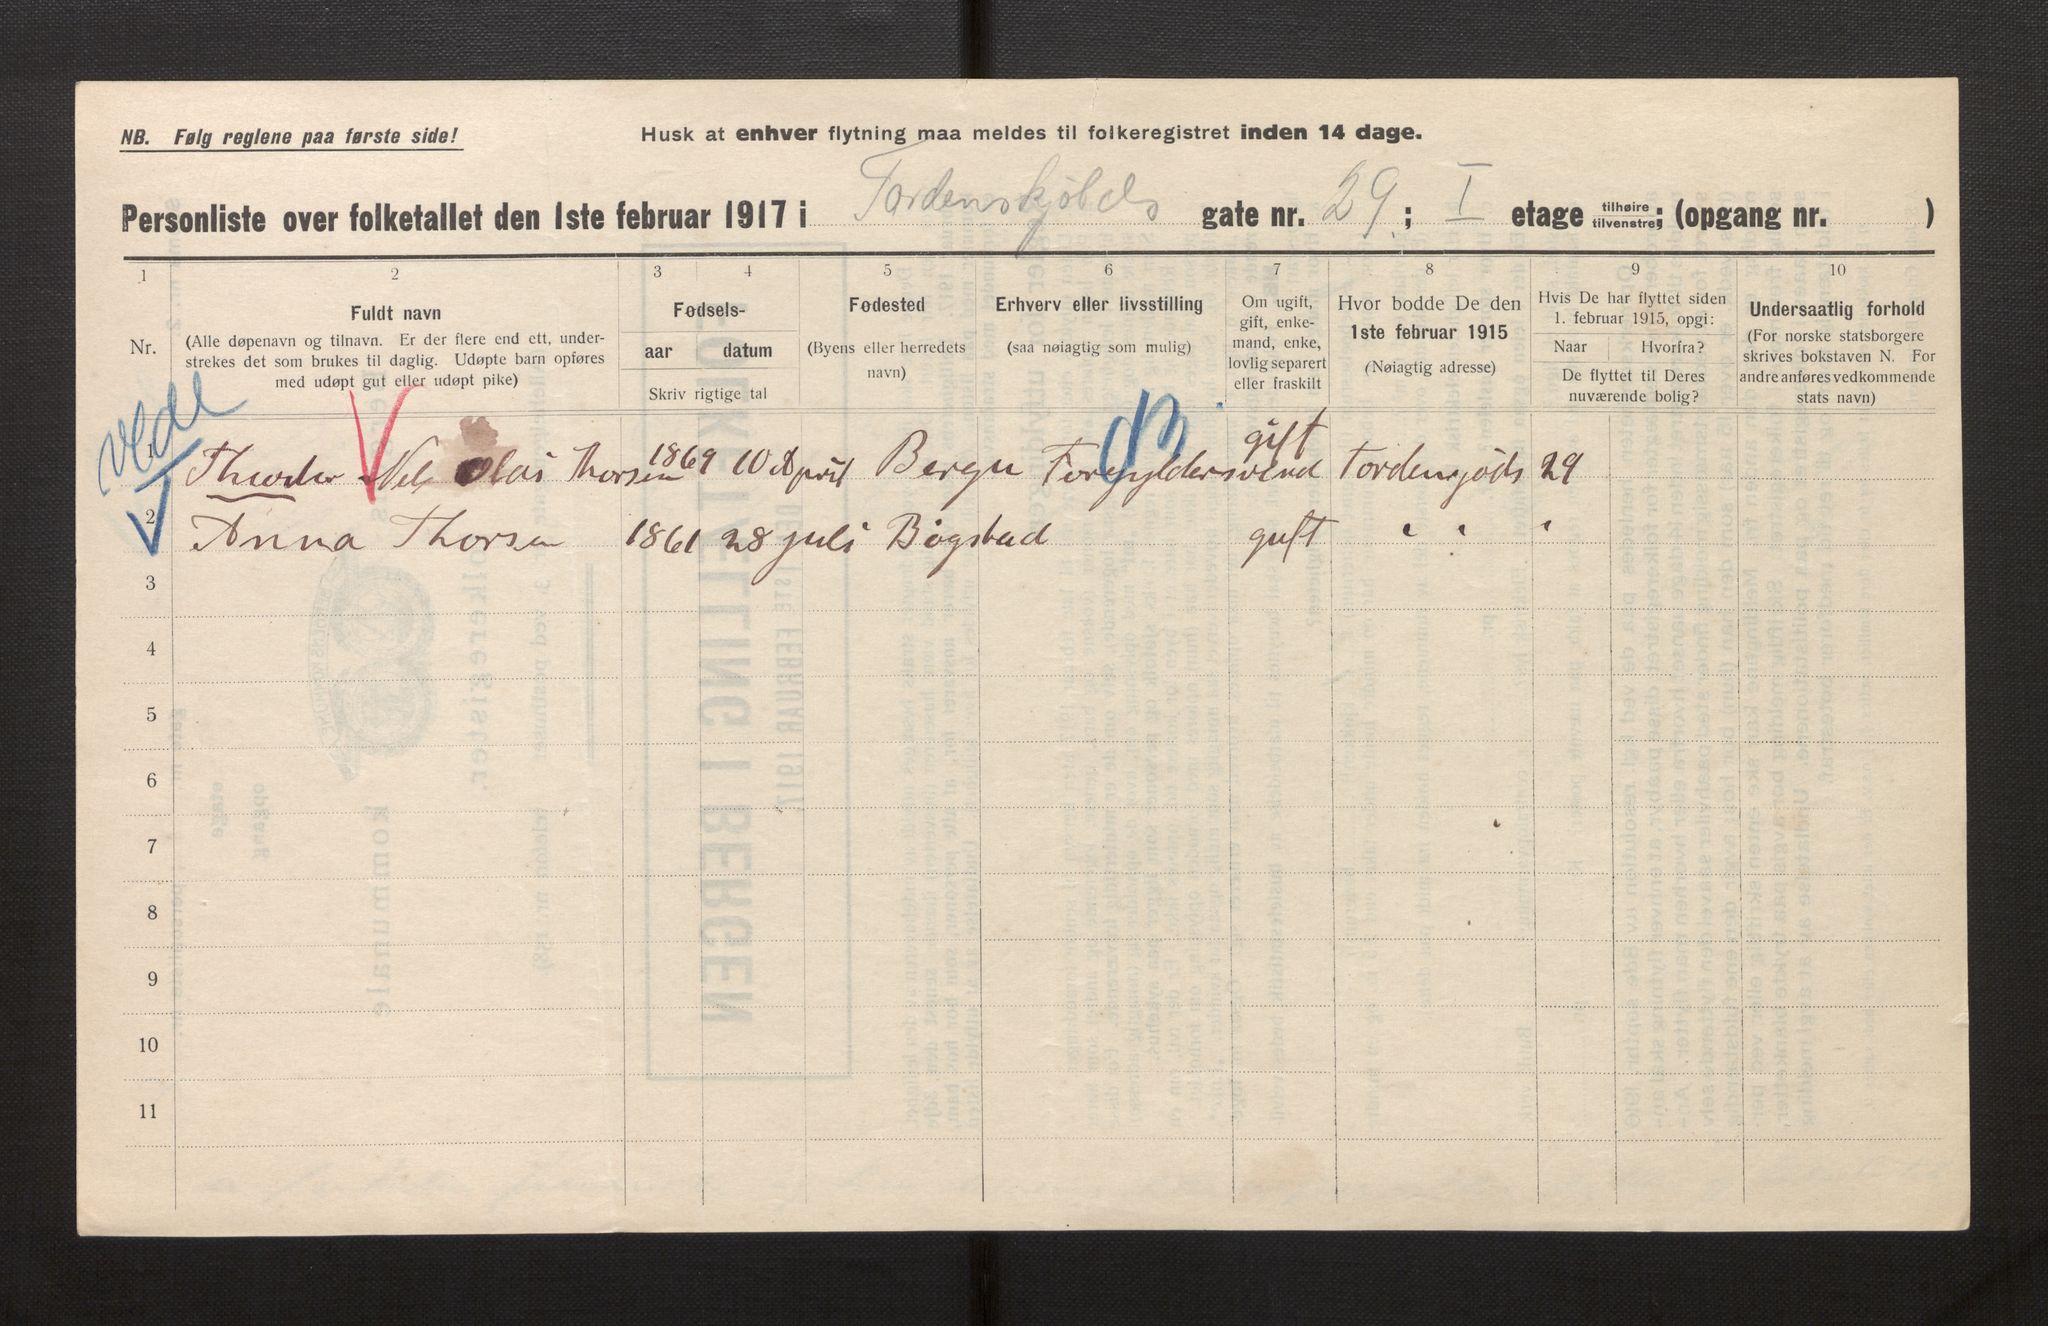 NB. Følg reglene paa første side!
Husk at enhver flytning maa meldes til folkeregistret inden 14 dage.
Personliste over folketallet den 1ste februar 1917 i Tordenskjolds gate nr. 29 ; I etage tilhøire tilvenstre; (opgang nr. )
1 2 3 4 5 6 7 8 9 10
Nr.
Fuldt navn
(Alle døpenavn og tilnavn. Er der flere end ett, under-
strekes det som brukes til daglig. Udøpte barn opføres
med udøpt gut eller udøpt pike)
Fødsels-
aar datum
Skriv rigtige tal
Fødested
(Byens eller herredets
navn)
Erhverv eller livsstilling
(saa nøiagtig som mulig)
Om ugift,
gift, enke-
mand, enke,
lovlig separert
eller fraskilt
Hvor bodde De den
1ste februar 1915
(Nøiagtig adresse)
Hvis De har flyttet siden
1. februar 1915, opgi:
Naar Hvorfra?
De flyttet til Deres
nuværende bolig?
Undersaatlig forhold
(For norske statsborgere
skrives bokstaven N. For
andre anføres vedkommende
stats navn)
1 Theodor Olai Thorsen 1869 10 April Bergen Forgyldersvend gift Tordensjöds 29
2 Anna Thorsen 1861 28 juli Bögstad gift " " "
3
4
5
6
7
8
9
10
11